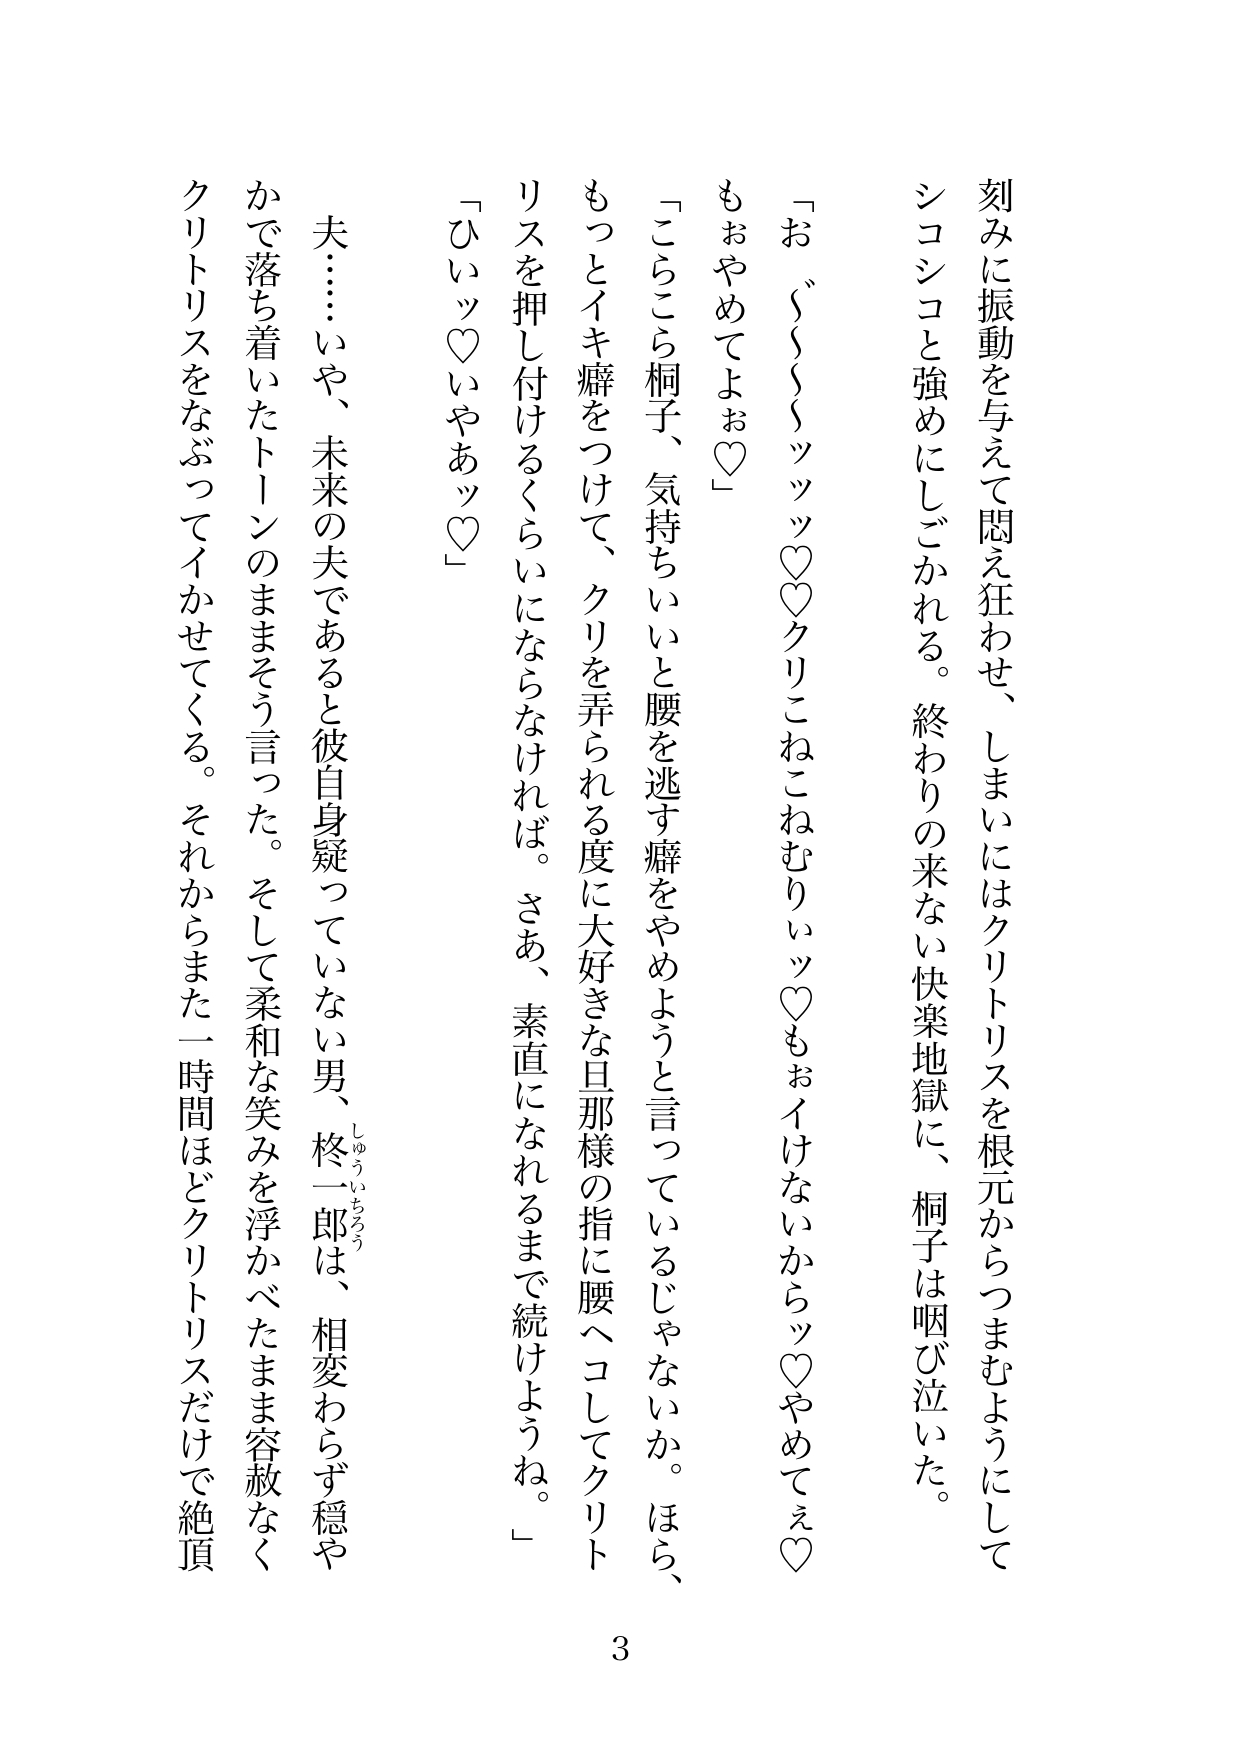 刻みに振動を与えて悶え狂わせ、しまいにはクリトリスを根元からつまむようにして
シコシコと強めにしごかれる。終わりの来ない快楽地獄に、桐子は咽び泣いた。
「お゛～～～～ッッッ♡♡クリこねこねむりぃッ♡もぉイけないからッ♡やめてぇ♡
もぉやめてよぉ♡」
「こらこら桐子、気持ちいいと腰を逃す癖をやめようと言っているじゃないか。ほら、
もっとイキ癖をつけて、クリを弄られる度に大好きな旦那様の指に腰へコしてクリト
リスを押し付けるくらいにならなければ。さあ、素直になれるまで続けようね。」
「ひいッ♡いやあッ♡」
夫……いや、未来の夫であると彼自身疑っていない男、柊一郎は、相変わらず穏や
しゅういちろう
かで落ち着いたトーンのままそう言った。そして柔和な笑みを浮かべたまま容赦なく
クリトリスをなぶってイかせてくる。それからまた一時間ほどクリトリスだけで絶頂
3